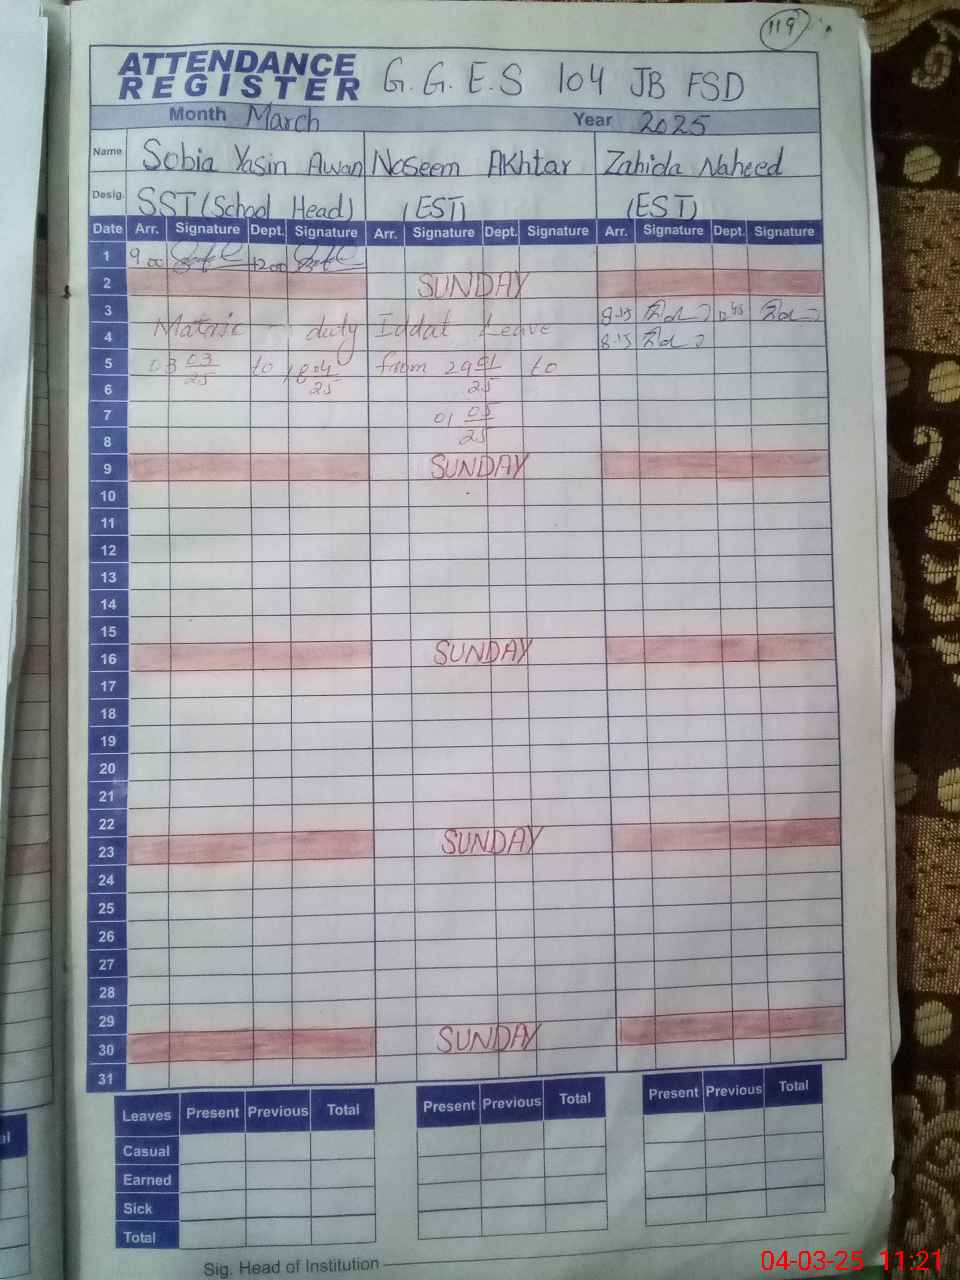 119
ATTENDANCE REGISTER G.G.E.S 104 JB FSD
Month March Year 2025
Name Sobia Yasin Awan Naseem Akhtar Zahida Naheed
Desig. SST (School Head) (EST) (EST)
Date Arr. Signature Dept. Signature Arr. Signature Dept. Signature Arr. Signature Dept. Signature
1 9.00 12.00
2 SUNDAY
3 8.15
Matric duty Iddat Leave
4 8.15
5 03 03/25 to 18 04/25 from 29 01/25 to
6
7 01 05/25
8
9 SUNDAY
10
11
12
13
14
15
16 SUNDAY
17
18
19
20
21
22
23 SUNDAY
24
25
26
27
28
29
30 SUNDAY
31
Leaves Present Previous Total Present Previous Total Present Previous Total
Casual
Earned
Sick
Total
Sig. Head of Institution
04-03-25 11:21